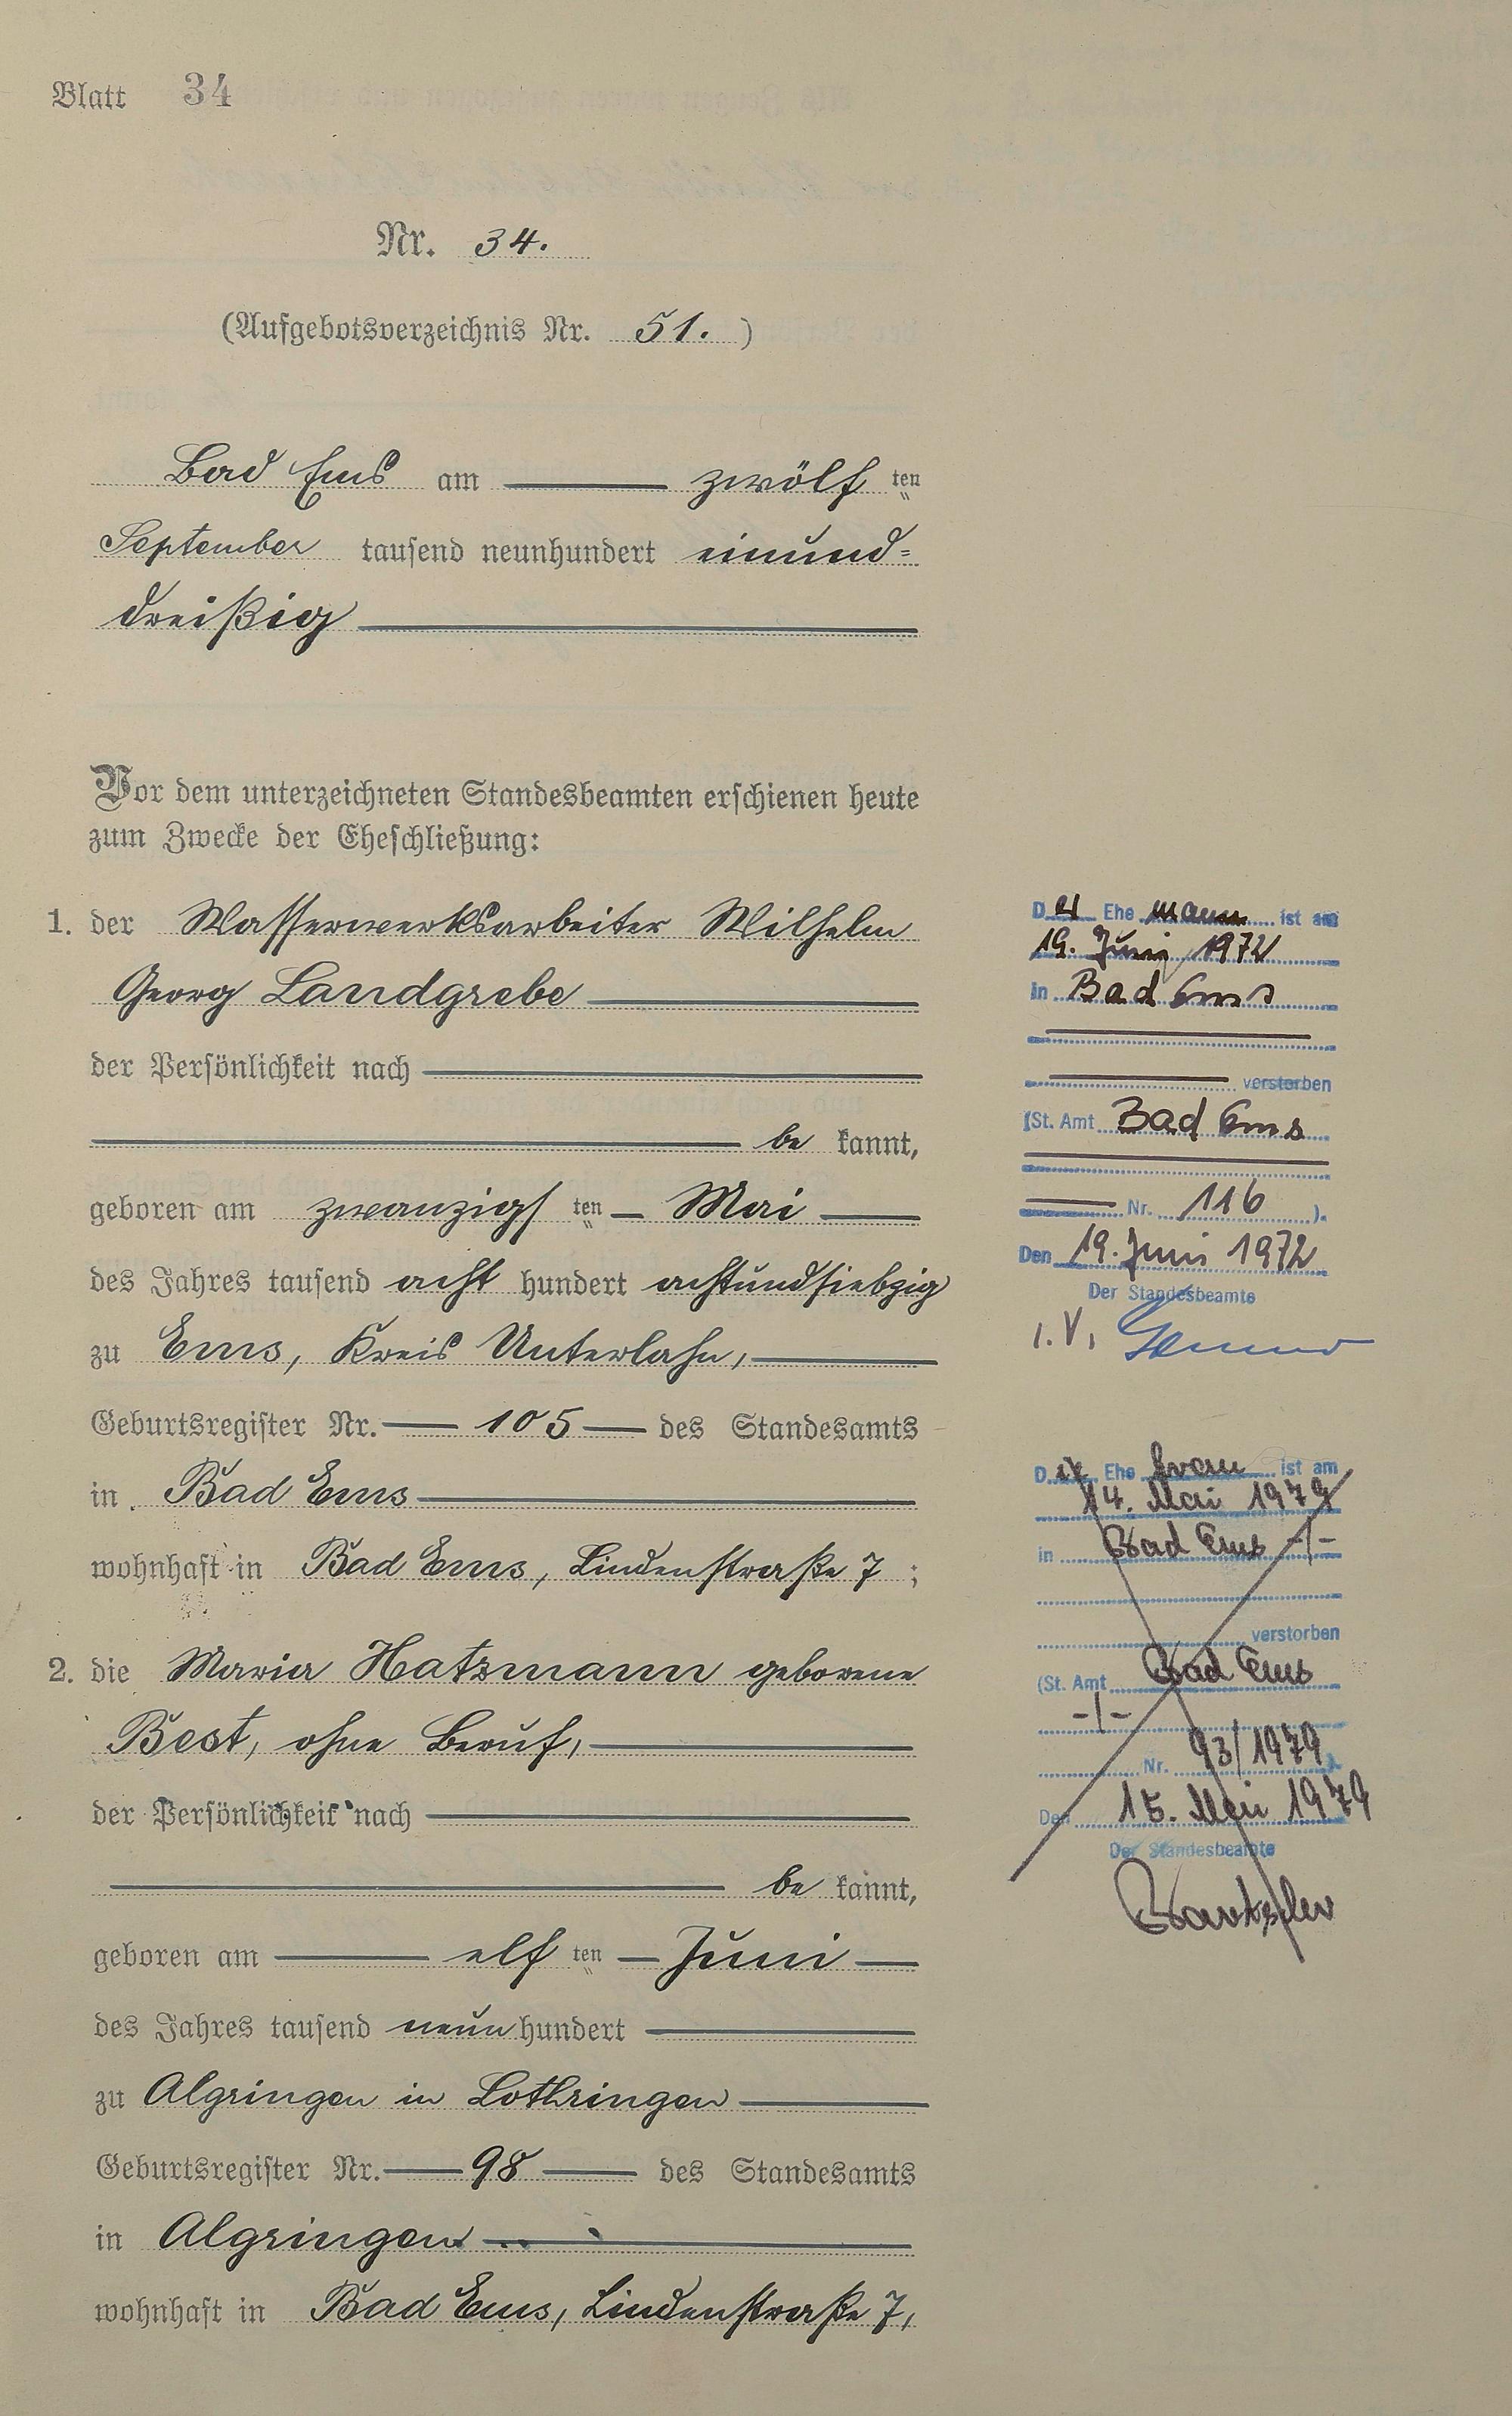 Blatt 34
Nr. 34.
(Aufgebotsverzeichnis Nr. 51.)
Bad Ems am zwölf ten
September tausend neunhundert einund=
dreißig
Vor dem unterzeichneten Standesbeamten erschienen heute
zum Zwecke der Eheschließung:
1. der Wasserwerksarbeiter Wilhelm
Georg Landgrebe
der Persönlichkeit nach
be kannt,
geboren am zwanzigs ten Mai
des Jahres tausend acht hundert achtundsiebzig
zu Ems, Kreis Unterlahn,
Geburtsregister Nr. 105 des Standesamts
in Bad Ems
wohnhaft in Bad Ems, Lindenstraße 7;
2. die Maria Hatzmann geborene
Best, ohne Beruf,
der Persönlichkeit nach
be kannt,
geboren am elf ten Juni
des Jahres tausend neun hundert
zu Algringen in Lothringen
Geburtsregister Nr. 98 des Standesamts
in Algringen
wohnhaft in Bad Ems, Lindenstraße 7,
Der Ehemann ist am
19. Juni 1972
in Bad Ems
verstorben
(St. Amt Bad Ems
Nr. 116).
Den 19. Juni 1972
Der Standesbeamte
i.V.
Die Ehefrau ist am
14. Mai 1979
in Bad Ems -/-
verstorben
(St. Amt Bad Ems
-/-
Nr. 93/1979).
Den 15. Mai 1979
Der Standesbeamte